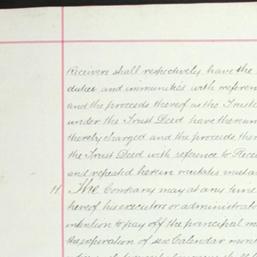 Receivers shall respectively have the
duties and immunities with referen
and the proceeds thereof as the Trust
under the Trust Deed have thereun
thereby charged and the proceeds ther
the Trust Deed with reference to Rece
and repeated herein mutatis mutan
11 The Company may at any time
thereof his executors or administrato
intention to pay off the principal m
the expiration of six Calendar mont